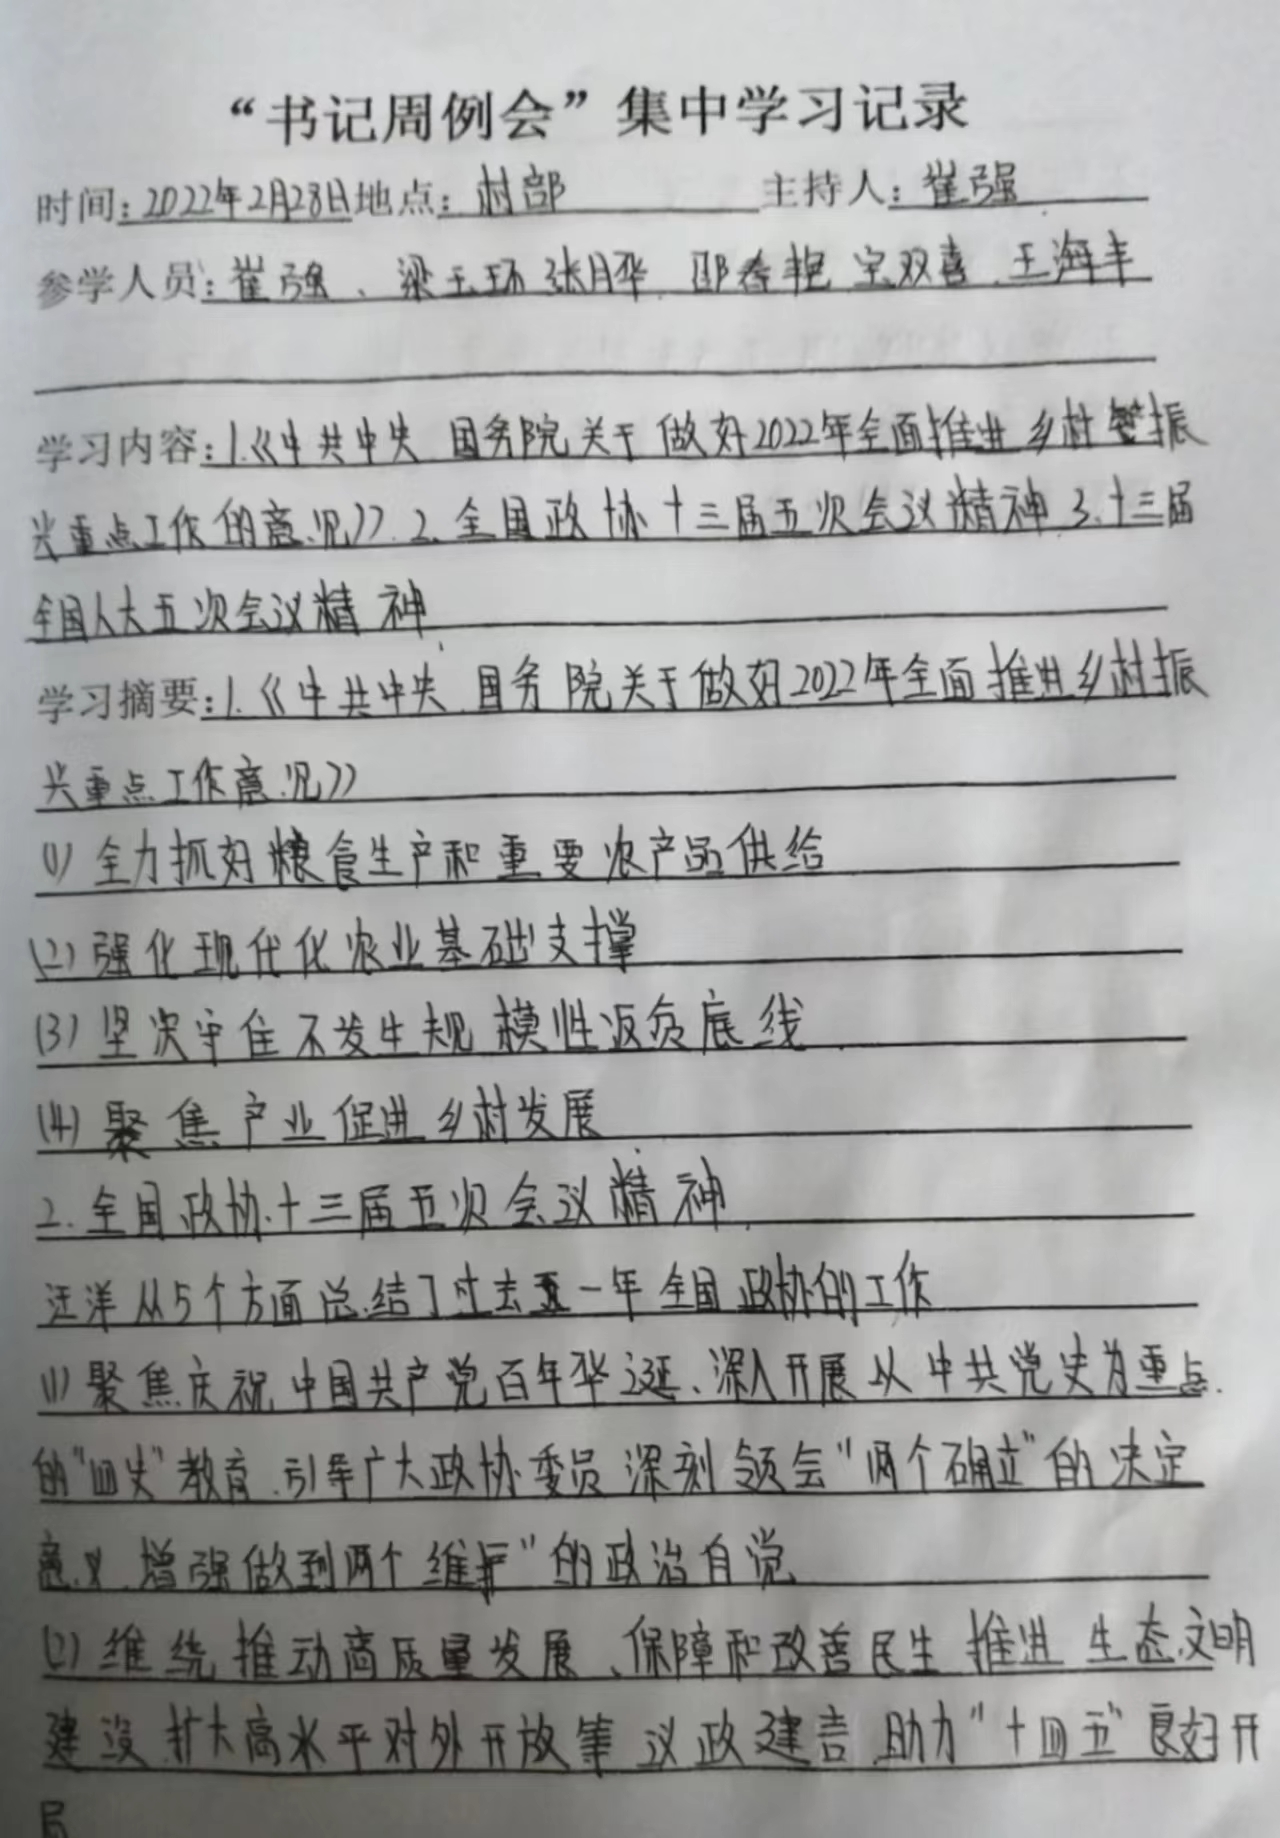 “书记周例会”集中学习记录
时间:2022年2月28日地点:村部 主持人:崔强
参学人员:崔强、梁玉环 张月华 邵春艳 宝双喜 王海丰
学习内容:1.《中共中央 国务院关于做好2022年全面推进乡村振
兴重点工作的意见》.2.全国政协十三届五次会议精神 3.十三届
全国人大五次会议精神
学习摘要:1.《中共中央 国务院关于做好2022年全面推进乡村振
兴重点工作意见》
(1)全力抓好粮食生产和重要农产品供给
(2)强化现代化农业基础支撑
(3)坚决守住不发生规模性返贫底线
(4)聚焦产业促进乡村发展
2.全国政协十三届五次会议精神
汪洋从5个方面总结了过去一年全国政协的工作
(1)聚焦庆祝中国共产党百年华诞、深入开展以中共党史为重点
的“四史”教育.引导广大政协委员深刻领会“两个确立”的决定
意义.增强做到两个维护”的政治自觉
(2)维绕推动高质量发展、保障和改善民生 推进生态文明
建设 扩大高水平对外开放等议政建言 助力“十四五”良好开
局